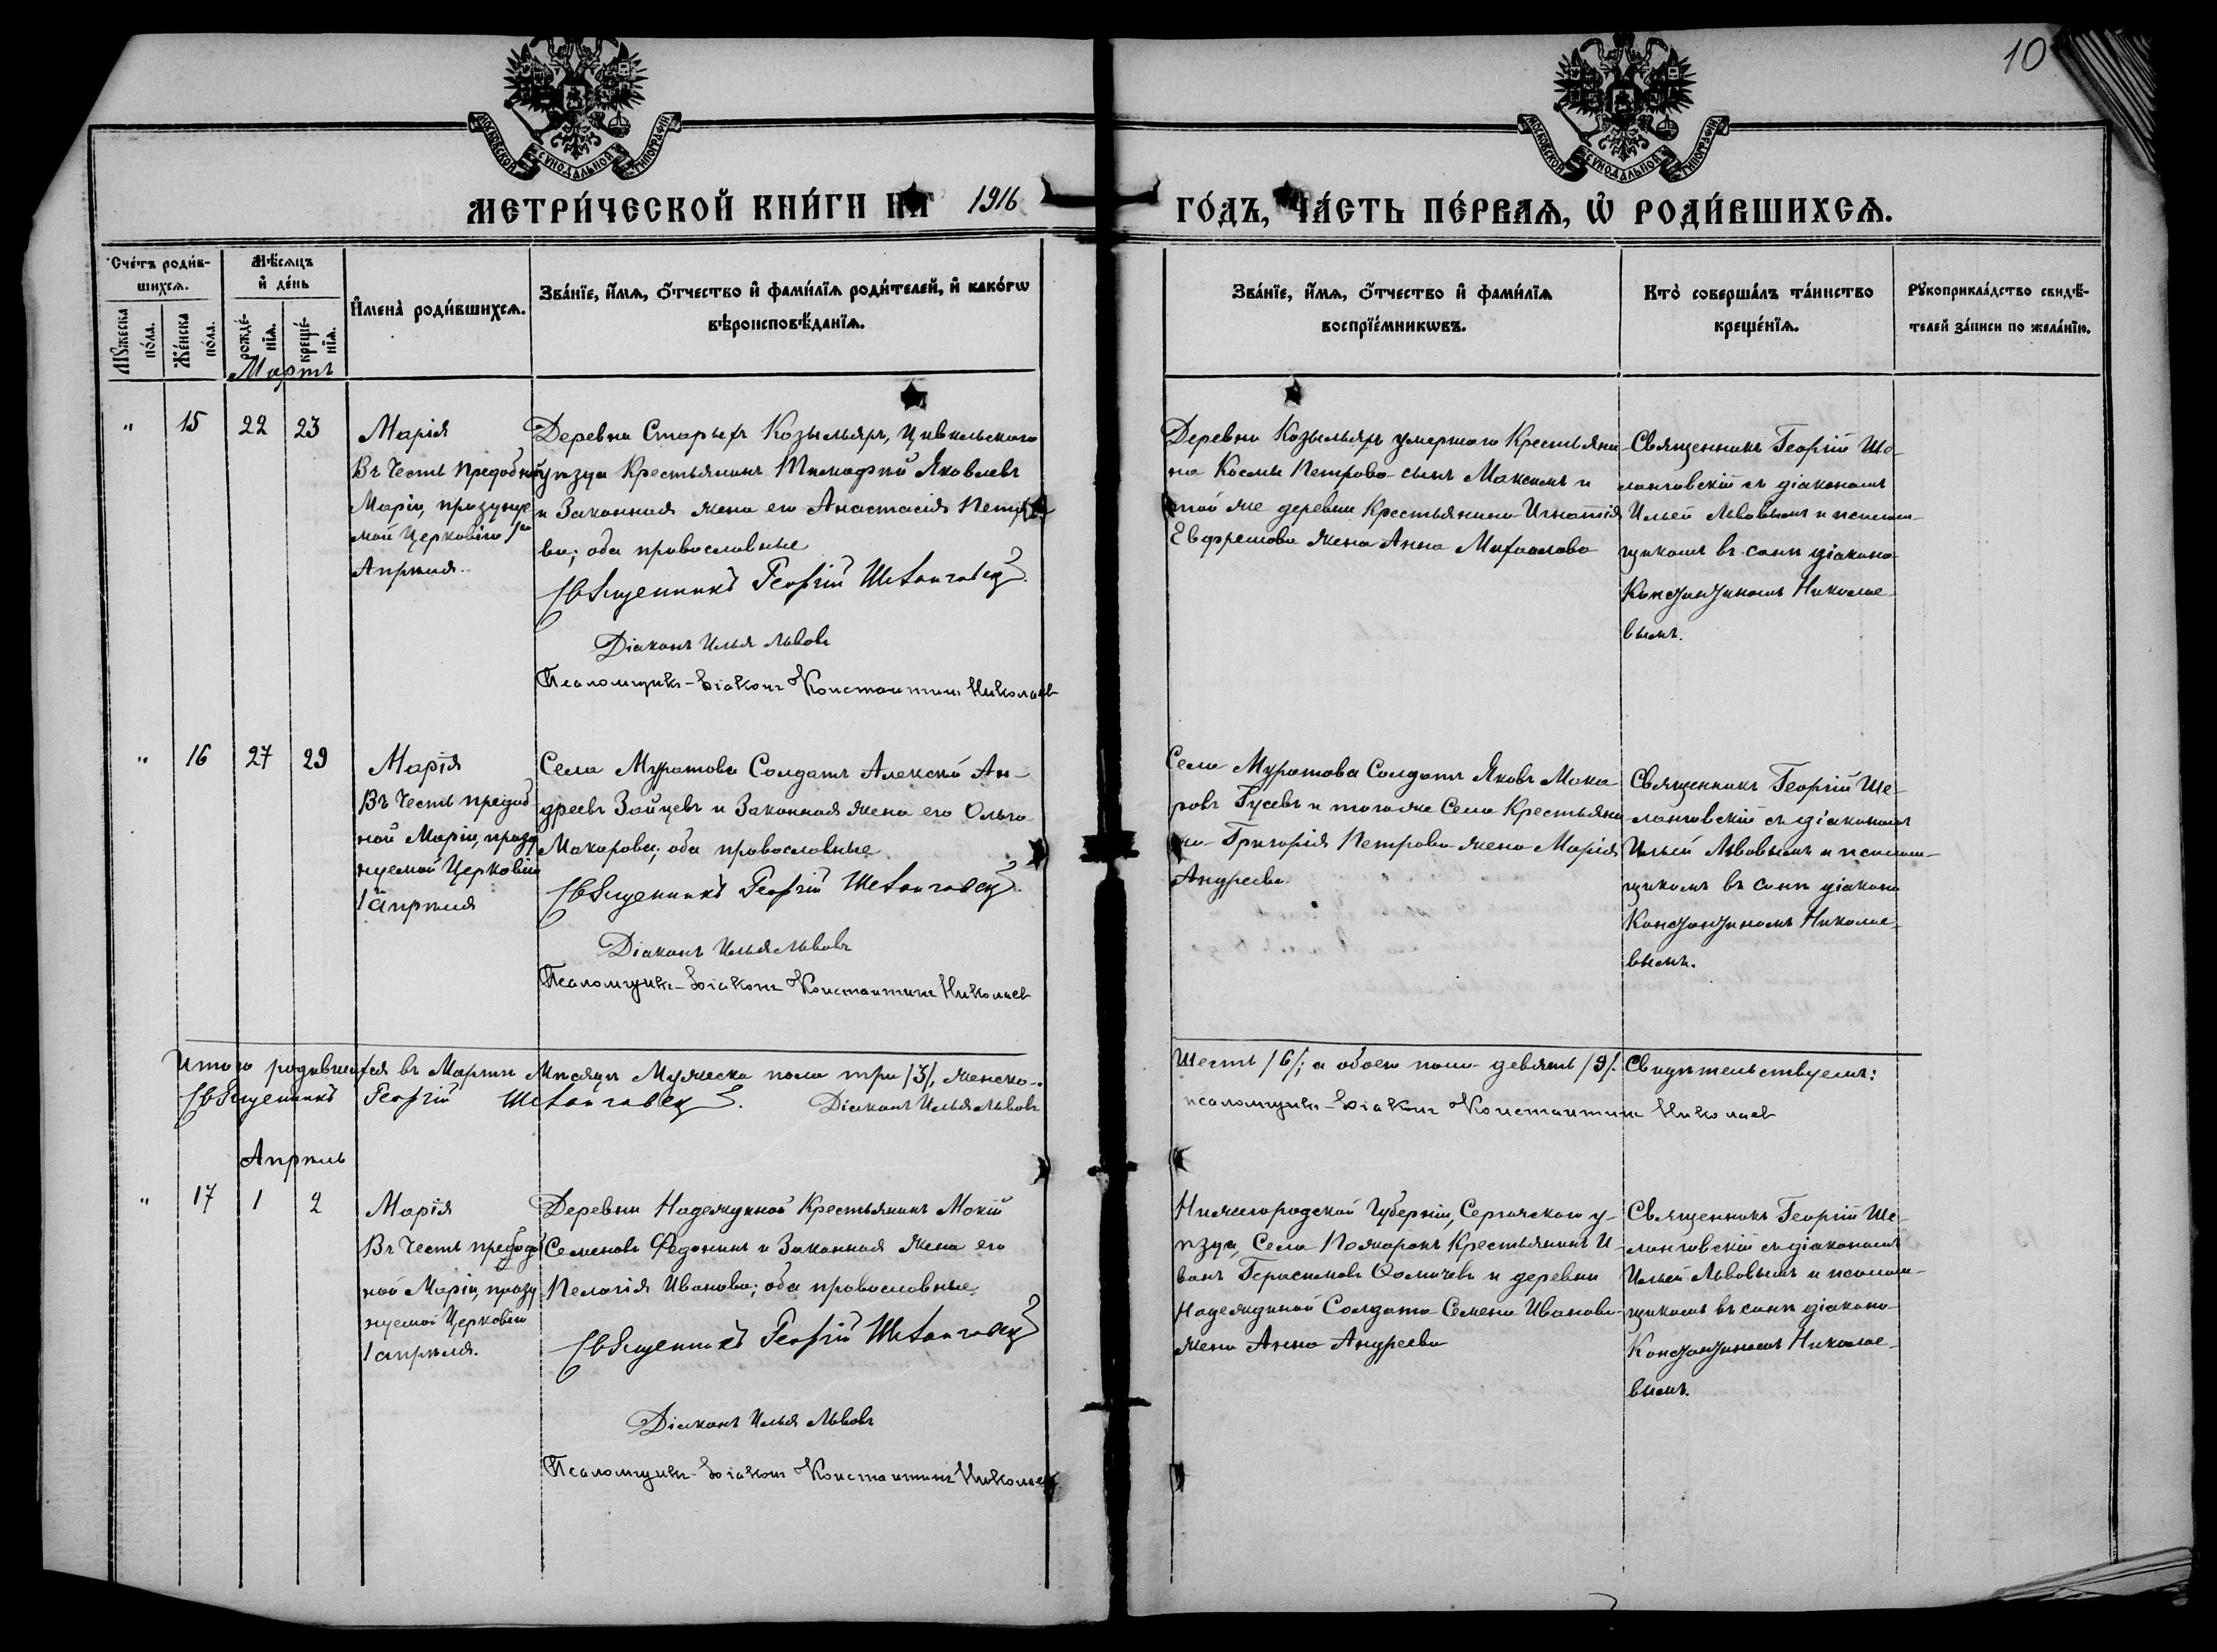 10
МОСКОВСКОЙ СѴНОДАЛЬНОЙ ТИПОГРАФІИ
МОСКОВСКОЙ СѴНОДАЛЬНОЙ ТИПОГРАФІИ
МЕТРИ́ЧЕСКОЙ КНИ́ГИ НА 1916
ГО́ДЪ, ЧА́СТЬ ПЕ́РВАѦ, Ѡ҆ РОДИ́ВШИХСѦ.
Сче́тъ роди́в-
шихсѧ.
Мѣ́сѧцъ
и҆ де́нь
И҆мена̀ роди́вшихсѧ.
Зва́нїе, и҆́мѧ, ѻ҆́тчество и҆ фами́лїѧ роди́телей, и҆ како́гѡ
вѣроисповѣ́данїѧ.
Зва́нїе, и҆́мѧ, ѻ҆́тчество и҆ фами́лїѧ
воспрїе́мникѡвъ.
Кто̀ соверша́лъ та́инство
креще́нїѧ.
Рꙋкоприкла́дство свидѣ́-
телей за́писи по жела́нїю.
Мꙋ́жеска
по́ла.
Же́нска
по́ла.
рожде́-
нїѧ.
креще́-
нїѧ.
Мартъ
" 15 22 23
Марія
Въ Честь Преподобной
Маріи, праздну-
мой Церковію 1го
Апрѣля.
Деревни Старыхъ Козыльяръ, Цивильскаго
уѣзда Крестьянинъ Тимофей Яковлевъ
и Законная жена его Анастасія Петро-
ва; оба православные
Священникъ Георгій Шеланговскій.
Діаконъ Илья Львовъ
Псаломщикъ-Діаконъ Константинъ Николаевъ
Деревни Козыльяръ умершаго Крестьяни-
на Космы Петрова сынъ Максимъ и
той же деревни Крестьянина Игнатія
Ефремова жена Анна Михаилова
Священникъ Георгій Ше-
ланговскій съ діакономъ
Ильей Львовымъ и псалом-
щикомъ въ санѣ діакона
Константиномъ Николае-
вымъ.
" 16 27 29
Марія
Въ Честь преподоб-
ной Маріи, празд-
нуемой Церковію
1 апрѣля
Села Муратова Солдатъ Алексѣй Ан-
дреевъ Зайцевъ и Законная жена его Ольга
Макарова; оба православные
Священникъ Георгій Шеланговскій.
Діаконъ Илья Львовъ
Псаломщикъ-Діаконъ Константинъ Николаевъ
Села Муратова Солдатъ Яковъ Мака-
ровъ Гусевъ и того же Села Крестьяни-
на Григорія Петрова жена Марія
Андреева
Священникъ Георгій Ше-
ланговскій съ діакономъ
Ильей Львовымъ и псалом-
щикомъ въ санѣ діакона
Константиномъ Николае-
вымъ.
Итого родившихся въ Мартѣ Мѣсяцѣ Мужеска пола три /3/, женска-
Шесть /6/; а обоего пола девять /9/. Свидѣтельствуемъ:
Священникъ Георгій Шеланговскій. Діаконъ Илья Львовъ
псаломщикъ-Діаконъ Константинъ Николаевъ
Апрѣль
" 17 1 2
Марія
Въ Честь преподоб-
ной Маріи, празд-
нуемой Церковію
1 апрѣля.
Деревни Надеждиной Крестьянинъ Мокій
Семеновъ Федонинъ и Законная жена его
Пелагія Иванова; оба православные.
Священникъ Георгій Шеланговскій
Діаконъ Илья Львовъ
Псаломщикъ-Діаконъ Константинъ Николаевъ
Нижегородской Губерніи, Сергачскаго у-
ѣзда, Села Пожарокъ Крестьянинъ И-
ванъ Герасимовъ Ѳомичевъ и деревни
Надеждиной Солдата Семена Иванова
жена Анна Андреева
Священникъ Георгій Ше-
ланговскій съ діакономъ
Ильей Львовымъ и псалом-
щикомъ въ санѣ діакона
Константиномъ Николае-
вымъ.